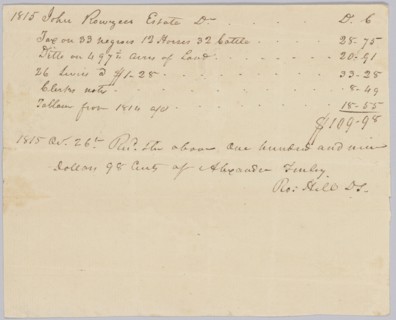 1815 John Rowzees Estate Dr D. C
Tax on 33 negroes 12 Horses 32 Cattle 28-75
Ditto on 497½ acres of Land 20-91
26 Levies @ $1-28 33-28
Clerks note 8-49
from 1814 18-55
$109-98
1815 26th Recd. the above one hundred and nine
Dollars 98 Cents of Alexander
Hill DS.